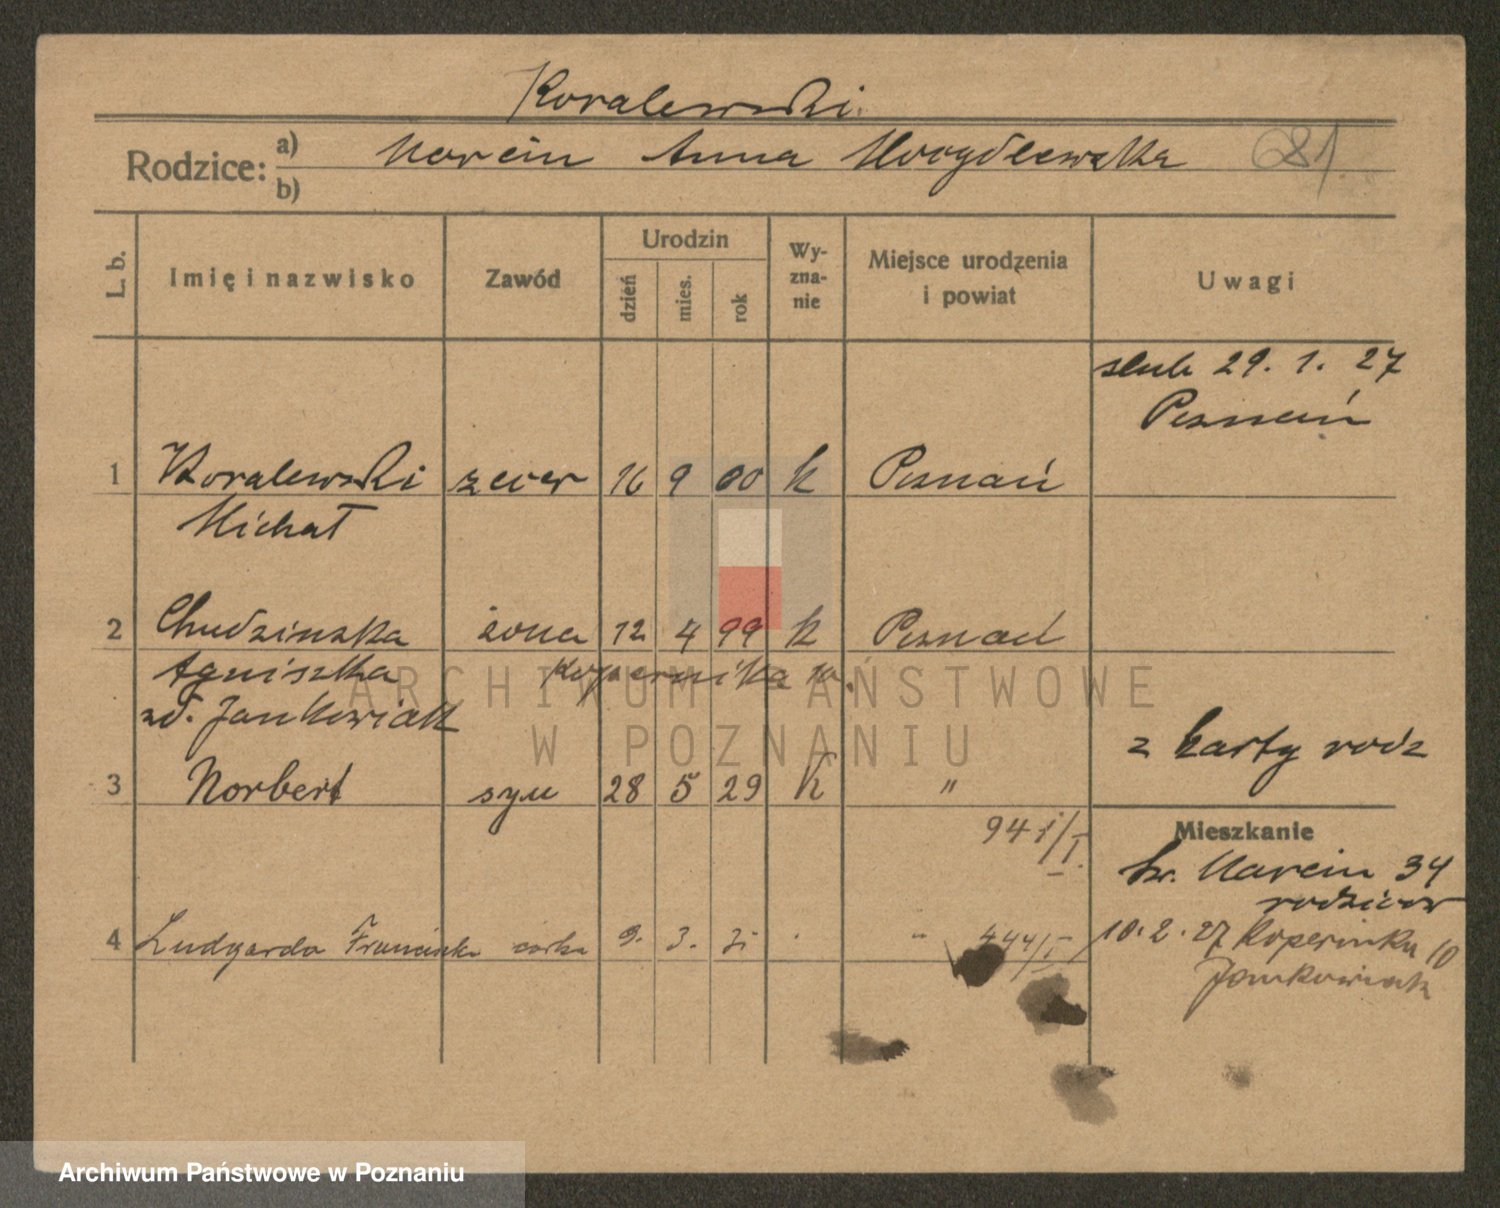 Koralewski
Rodzice: a) Marcin Anna 681
b)
L. b.
Imię i nazwisko
Zawód
Urodzin
dzień
mies.
rok
Wy-
zna-
nie
Miejsce urodzenia
i powiat
Uwagi
ślub 29. 1. 27
Poznań
1 Koralewski zecer 16 9 00 k Poznań
Michał
2 Chudzinska żona 12 4 99 k Poznań
Agniszka Kopernika 10.
zd. Jankowiak
z karty rodz
3 Norbert syn 28 5 29 k "
941/I.
Mieszkanie
św. Marcin 34
rodziców
4 Ludgarda Franciszka córka 9. 3. 31 " " 444/I
10. 2. 27 Kopernika 10
Jankowiak
ARCHIWUM PAŃSTWOWE
W POZNANIU
Archiwum Państwowe w Poznaniu